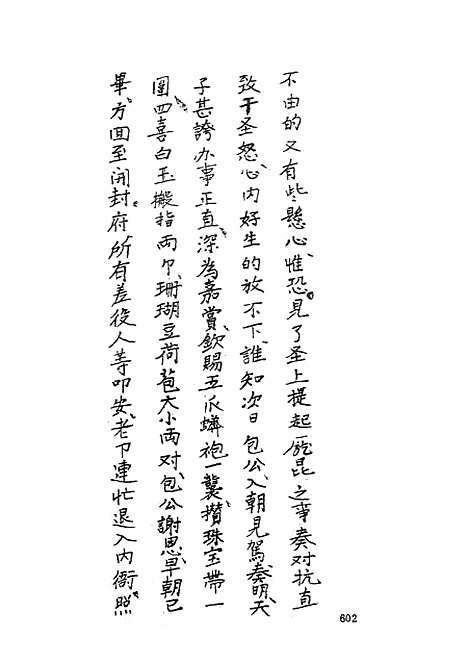 不由的又有些懸心、惟恐見了圣上提起龐昆之事奏对抗直
致干圣怒、心内好生的放不下、誰知次日包公入朝見駕、奏明、天
子甚誇办事正直、深為嘉賞、欽賜五爪蟒袍一襲、攢珠宝帶一
圍、四喜白玉搬指両个、珊瑚豆荷苞大小両对、包公謝恩、早朝已
畢、方回至開封府、所有差役人等叩安、老下連忙退入内衙、照
602